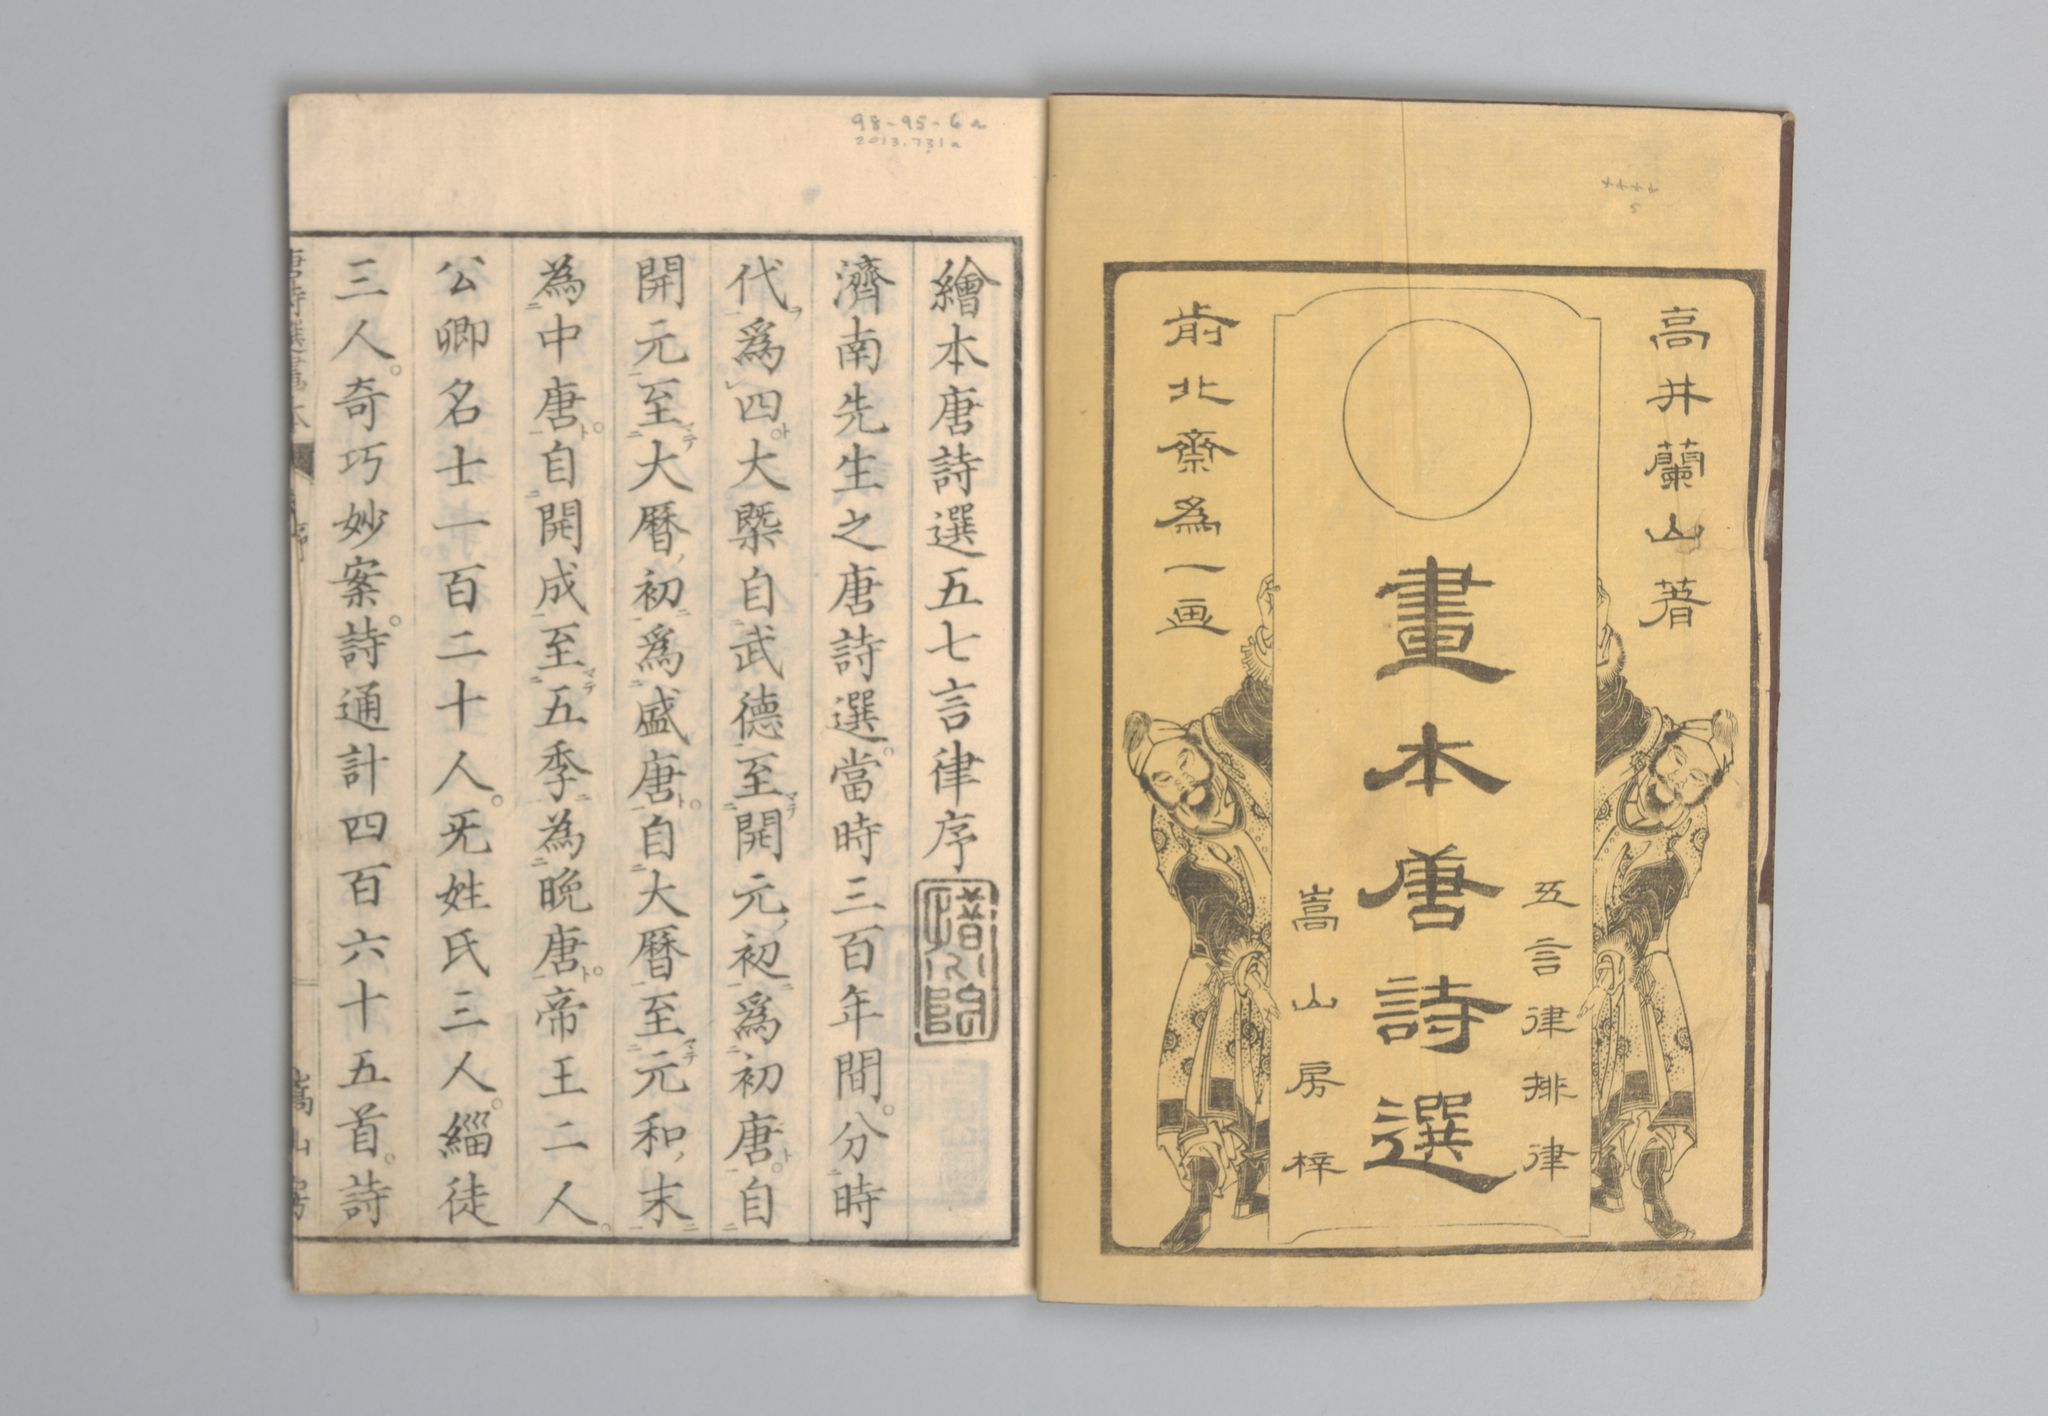 高井蘭山著
畫本唐詩選
五言律排律
嵩山房梓
前北斎為一画
98-95-6a
2013.731a
繪本唐詩選五七言律序
濟南先生之唐詩選。當時三百年間。分時
代爲四大槩自武德至開元，初爲初唐。自
開元至大曆，初爲盛唐。自大曆至元和，末
為中唐。自開成至五季為晚唐。帝王二人。
公卿名士一百二十人。旡姓氏三人。緇徒
三人。奇巧妙案。詩通計四百六十五首。詩